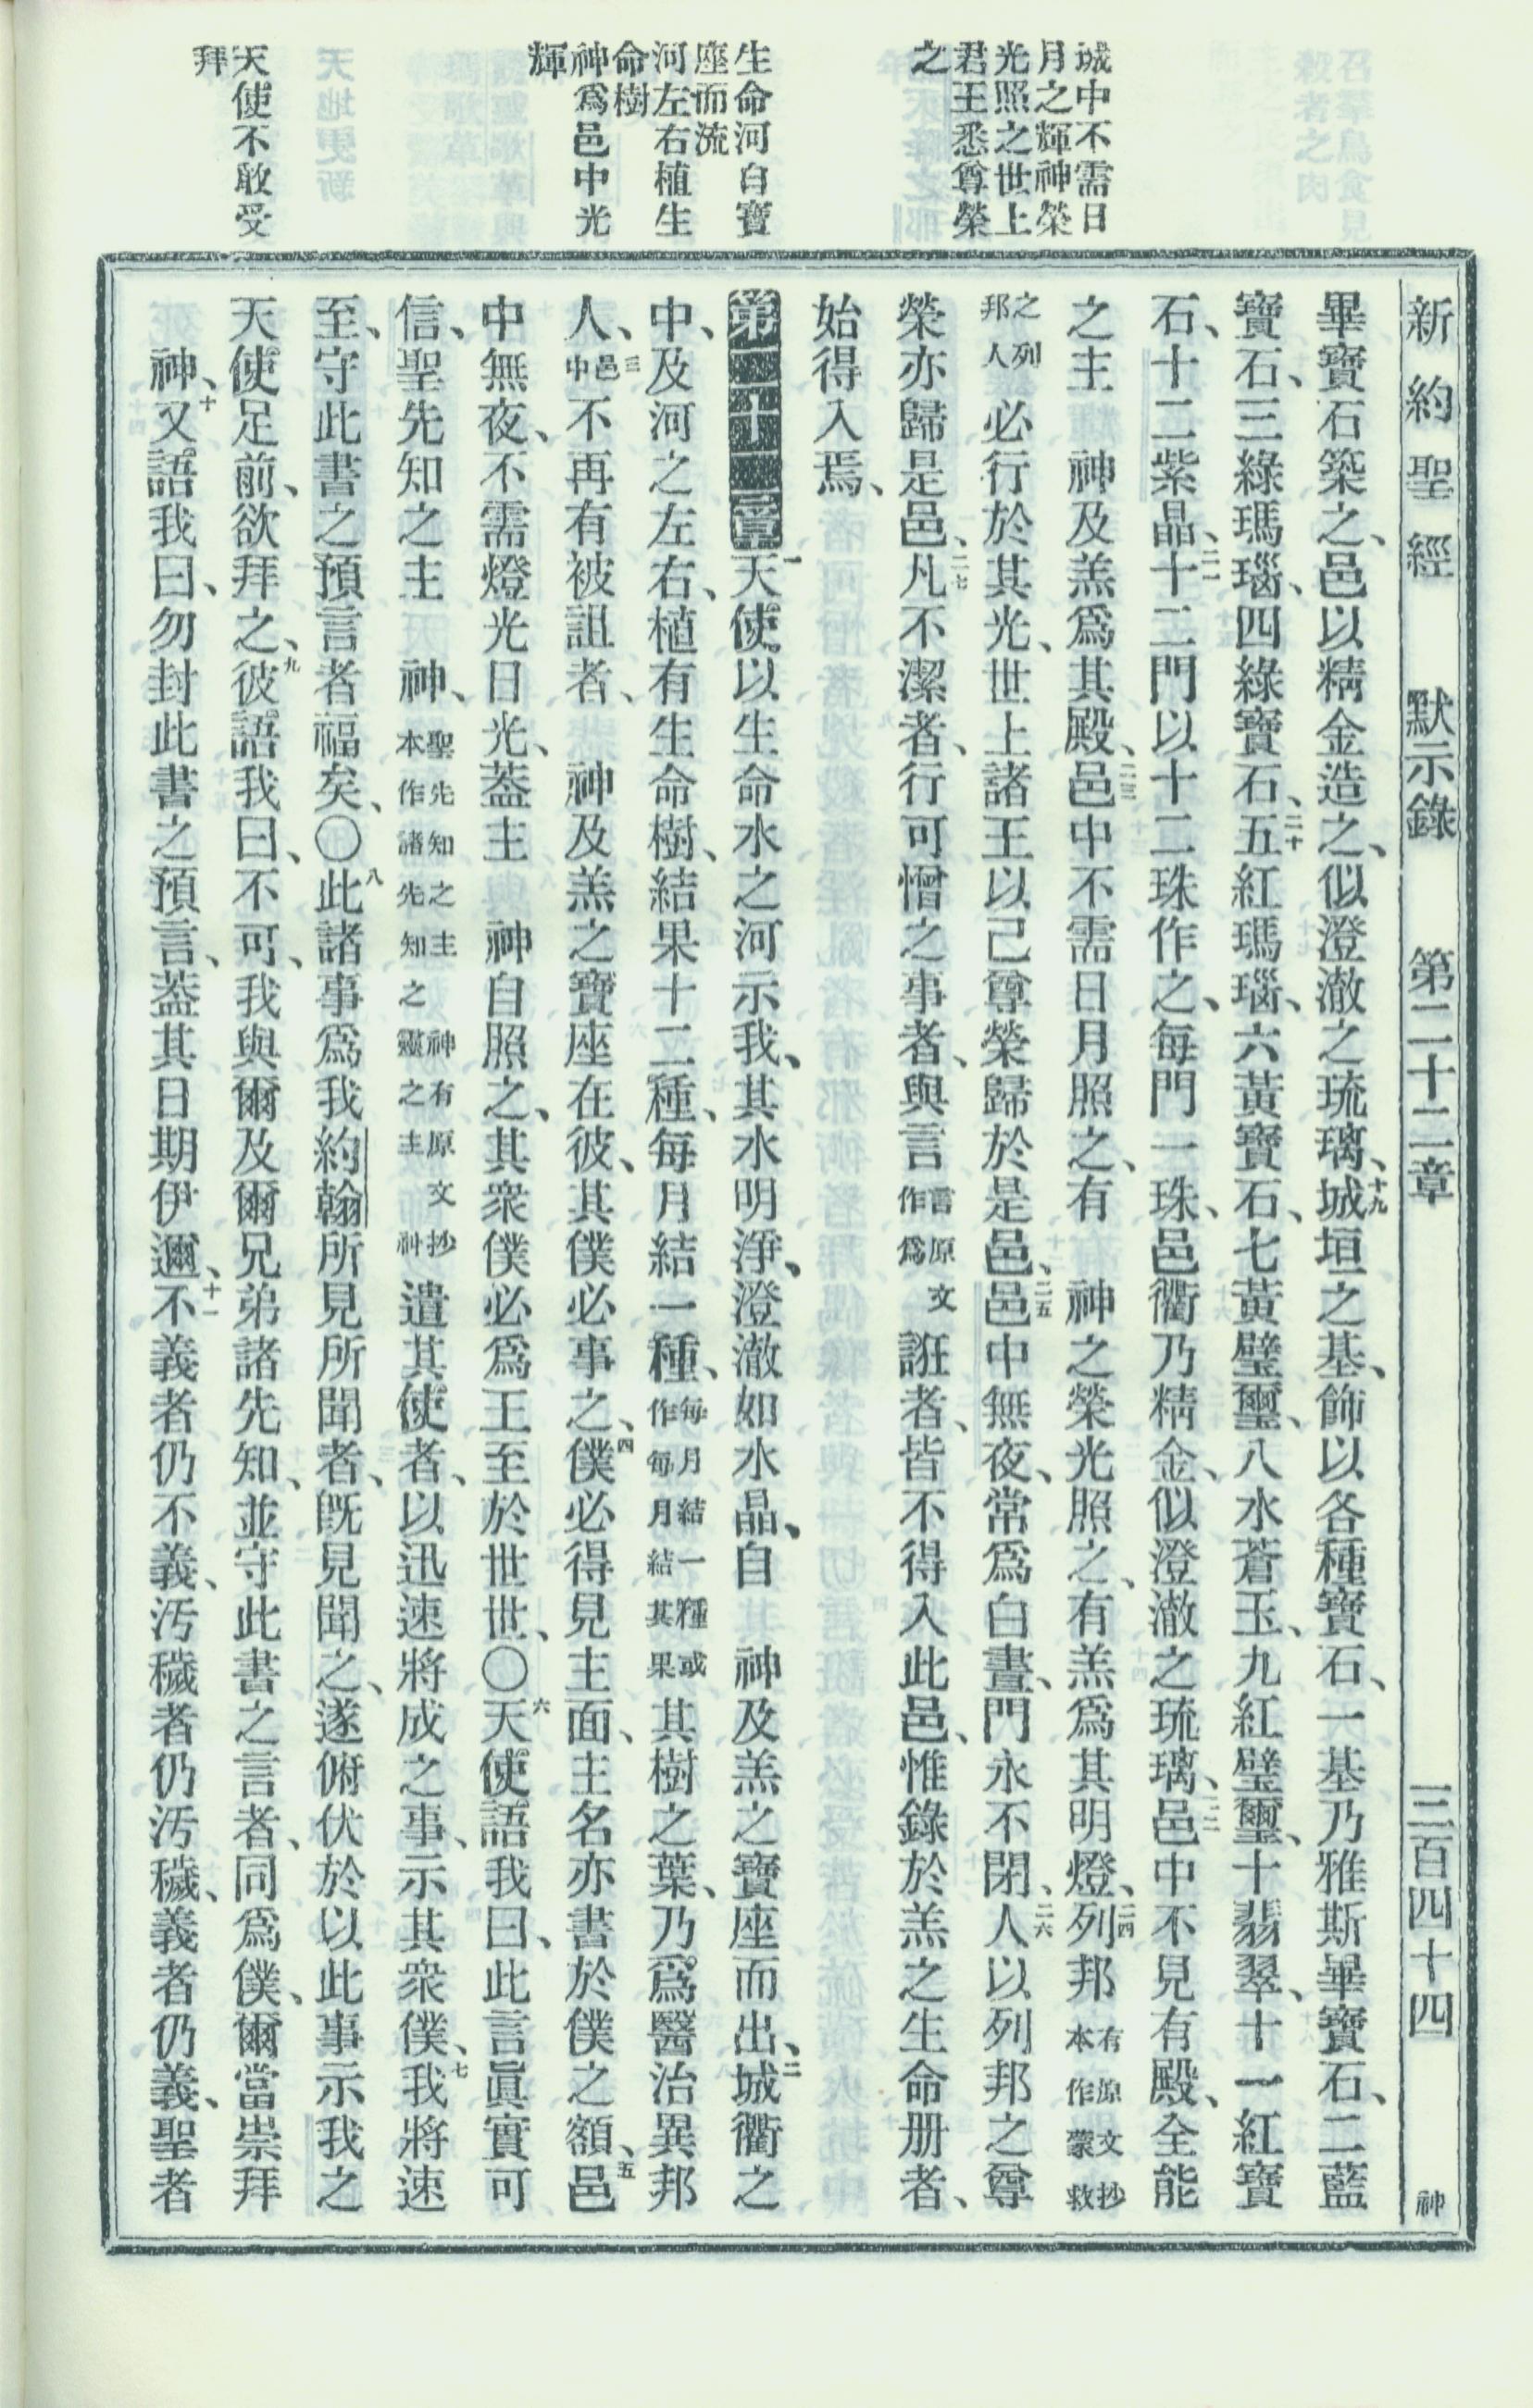 新約聖經 默示錄 第二十二章 三百四十四 神
城中不需日
月之輝神榮
光照之世上
君王悉尊榮
之
生命河自寶
座而流
河左右植生
命樹
神爲邑中光
輝
天使不敢受
拜
畢寶石築之、邑以精金造之、似澄澈之琉璃、十九城垣之基、飾以各種寶石、一基乃雅斯畢寶石、二藍
寶石、三綠瑪瑙、四綠寶石、二十五紅瑪瑙、六黃寶石、七黃璧璽、八水蒼玉、九紅璧璽、十翡翠、十一紅寶
石、十二紫晶、二一十二門以十二珠作之、每門一珠、邑衢乃精金、似澄澈之琉璃、二二邑中不見有殿、全能
之主 神及羔爲其殿、二三邑中不需日月照之、有 神之榮光照之、有羔爲其明燈、二四列邦有原文抄本作蒙救
之列邦人必行於其光、世上諸王以己尊榮歸於是邑、二五邑中無夜、常爲白晝、門永不閉、二六人以列邦之尊
榮亦歸是邑、二七凡不潔者、行可憎之事者、與言言原文作爲誑者、皆不得入此邑、惟錄於羔之生命册者、
始得入焉、
第二十二章一天使以生命水之河示我、其水明淨、澄澈如水晶、自 神及羔之寶座而出、二城衢之
中、及河之左右、植有生命樹、結果十二種、每月結一種、每月結一種或作每月結其果其樹之葉、乃爲醫治異邦
人、三邑中不再有被詛者、 神及羔之寶座在彼、其僕必事之、四僕必得見主面、主名亦書於僕之額、五邑
中無夜、不需燈光日光、蓋主 神自照之、其衆僕必爲王至於世世、〇六天使語我曰、此言眞實可
信、聖先知之主 神、聖先知之主神有原文抄本作諸先知之靈之主神遣其使者、以迅速將成之事、示其衆僕、七我將速
至、守此書之預言者福矣、〇八此諸事爲我約翰所見所聞者、旣見聞之、遂俯伏於以此事示我之
天使足前、欲拜之、九彼語我曰、不可、我與爾及爾兄弟諸先知、並守此書之言者、同爲僕、爾當崇拜
神、十又語我曰、勿封此書之預言、蓋其日期伊邇、十一不義者仍不義、汚穢者仍汚穢、義者仍義、聖者